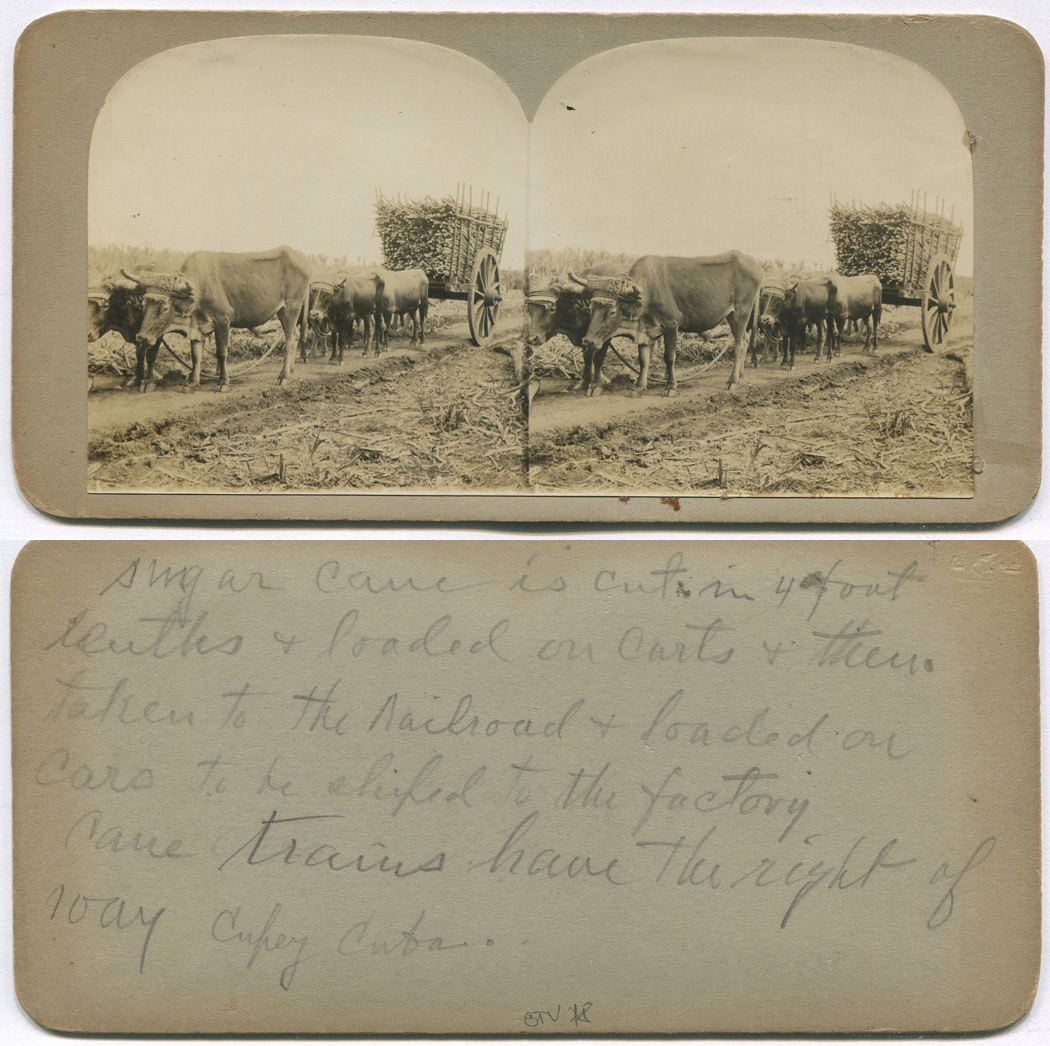 sugar cane is cut in 4 foot
lenths + loaded on carts + then
taken to the Railroad + loaded on
cars to be shiped to the factory
cane trains have the right of
way Cupey Cuba.